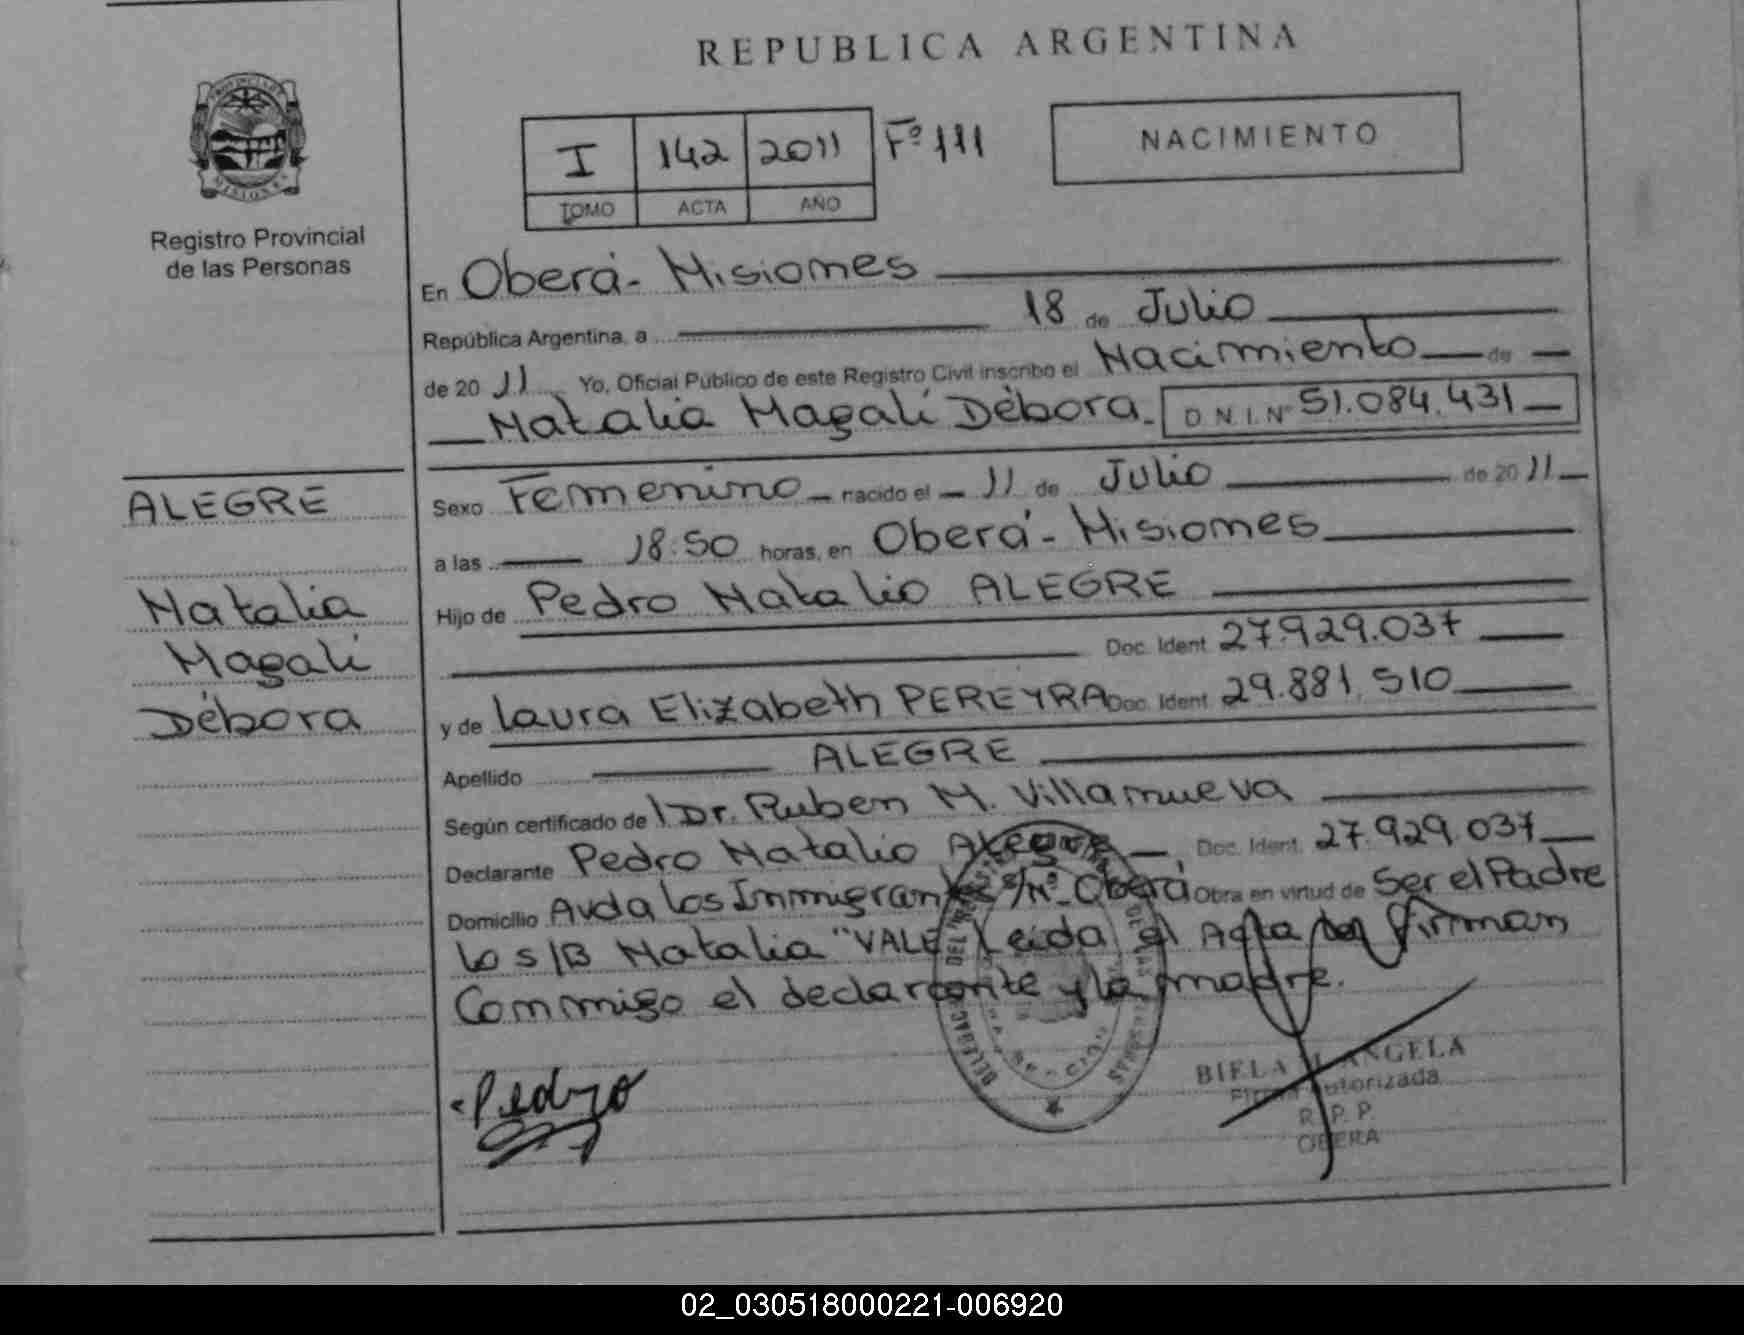 REPUBLICA ARGENTINA
PROVINCIA DE MISIONES
Registro Provincial
de las Personas
I 142 2011 Fº 111
TOMO ACTA AÑO
NACIMIENTO
En Oberá - Misiones
República Argentina, a 18 de Julio
de 2011 Yo, Oficial Público de este Registro Civil inscribo el Nacimiento de
Natalia Magalí Débora. D.N.I. Nº 51.084.431
ALEGRE
Natalia
Magalí
Débora
Sexo Femenino nacido el 11 de Julio de 2011
a las 18:50 horas, en Oberá - Misiones
Hijo de Pedro Natalio ALEGRE
Doc. Ident. 27.929.037
y de Laura Elizabeth PEREYRA Doc. Ident. 29.881.510
Apellido ALEGRE
Según certificado de Dr. Ruben M. Villanueva
Declarante Pedro Natalio Alegre Doc. Ident. 27.929.037
Domicilio Avda Los Inmigrantes s/Nº - Oberá Obra en virtud de Ser el Padre
Lo s/B Natalia "VALE Leida el Acta firman
Conmigo el declarante y la madre.
Pedro
BIELA ANGELA
Firma Autorizada
R. P. P.
OBERA
02_030518000221-006920